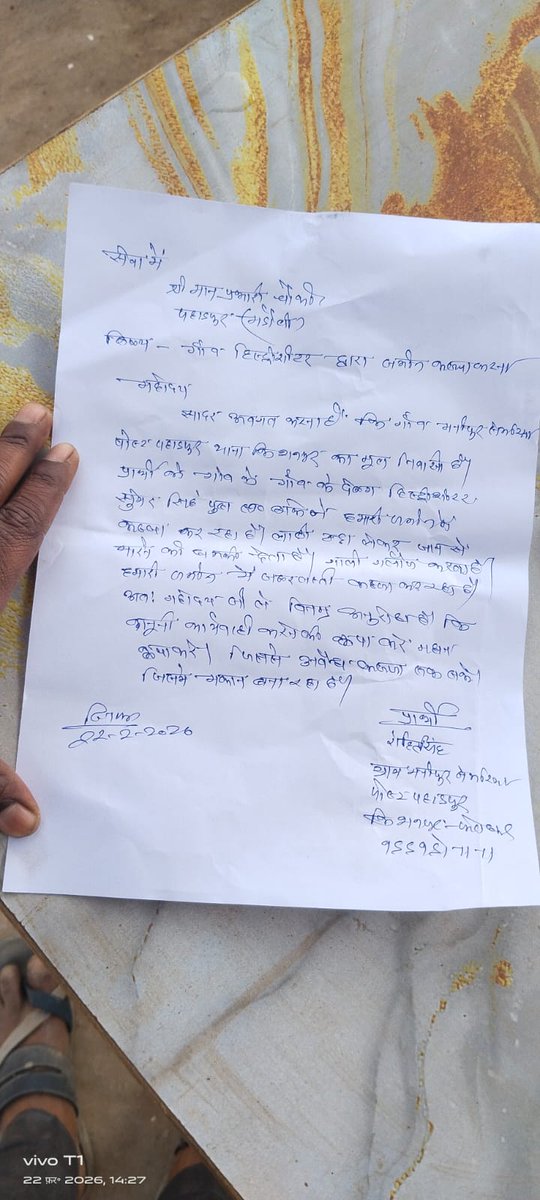 सेवा में
श्री मान प्रभारी चौकी
पहाडपुर
विषय - गाँव हिस्ट्रीशीटर द्वारा जमीन कब्जा करना
महोदय
सादर अवगत कराना है कि गाँव
पोस्ट पहाडपुर थाना किशनपुर का मूल निवासी हूँ।
प्रार्थी के गाँव के गाँव के दबंग हिस्ट्रीशीटर
सिंह पुत्र हमारी जमीन में
कब्जा कर रहा है। लाठी डंडा लेकर जान से
मारने की धमकी देता है। गाली गलौज करता है।
हमारी जमीन में जबरजस्ती कब्जा कर रहा है।
अतः महोदय जी से विनम्र अनुरोध है कि
कानूनी कार्यवाही करने की कृपा करें महान
कृपा करे। जिससे अवैध कब्जा रुक सके।
जिसमे मकान बना रहा है।
दिनांक
22-2-2026
प्रार्थी
ग्राम
पोस्ट पहाडपुर
किशनपुर - फतेहपुर
vivo T1
22 फ़र॰ 2026, 14:27